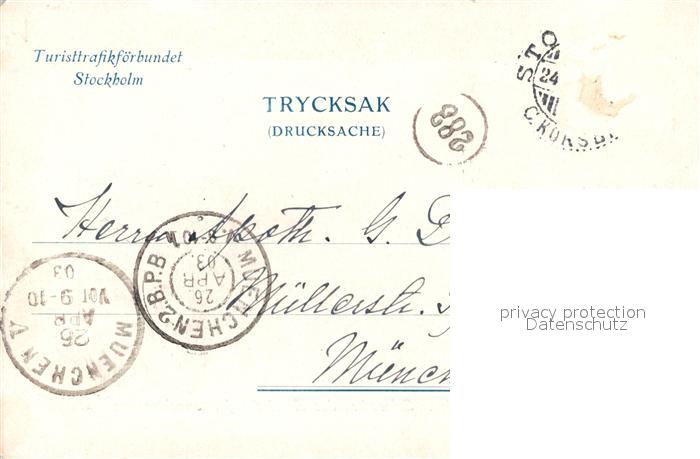 Turisttrafikförbundet
Stockholm
TRYCKSAK
(DRUCKSACHE)
STO
24
C.K.O.K.S.B.
288
Herrn Apoth. G. D
Müllerstr.
Münc
MUENCHEN 2 B.P.B
26
APR
03
MUENCHEN I
26
APR
Vor 9-10
03
privacy protection
Datenschutz